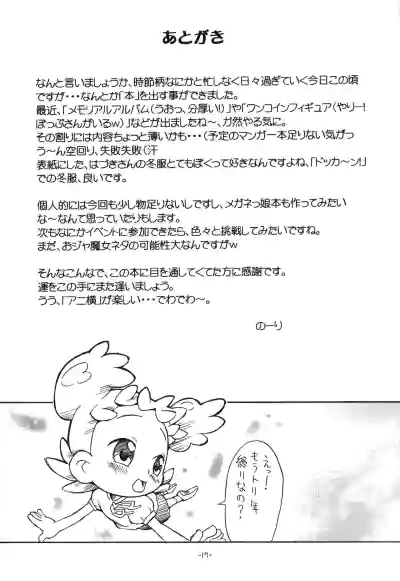 あとがき
なんと言いましょうか、時節柄なにかと忙しなく日々過ぎていく今日この頃
ですが・・・なんとか「本」を出す事ができました。
最近、「メモリアルアルバム(うおっ、分厚い!)」や「ワンコインフィギュア(やりー!
ぽっぷさんがいるw)」などが出ましたね~、が然やる気に。
その割りには内容ちょっと薄いかも・・・(予定のマンガ一本足りない気がっ
う~ん空回り、失敗失敗(汗
表紙にした、はづきさんの冬服とてもぼくって好きなんですよね、「ドッカ~ン!」
での冬服、良いです。
個人的には今回も少し物足りないしですし、メガネっ娘本も作ってみたい
な~なんて思っていたりもします。
次もなにかイベントに参加できたら、色々と挑戦してみたいですね。
まだ、おジャ魔女ネタの可能性大なんですがw
そんなこんなで、この本に目を通してくてた方に感謝です。
運をこの手にまた逢いましょう。
うう、「アニ横」が楽しい・・・でわでわ~。
のーり
えっ!
もう
終りなの?
-17-